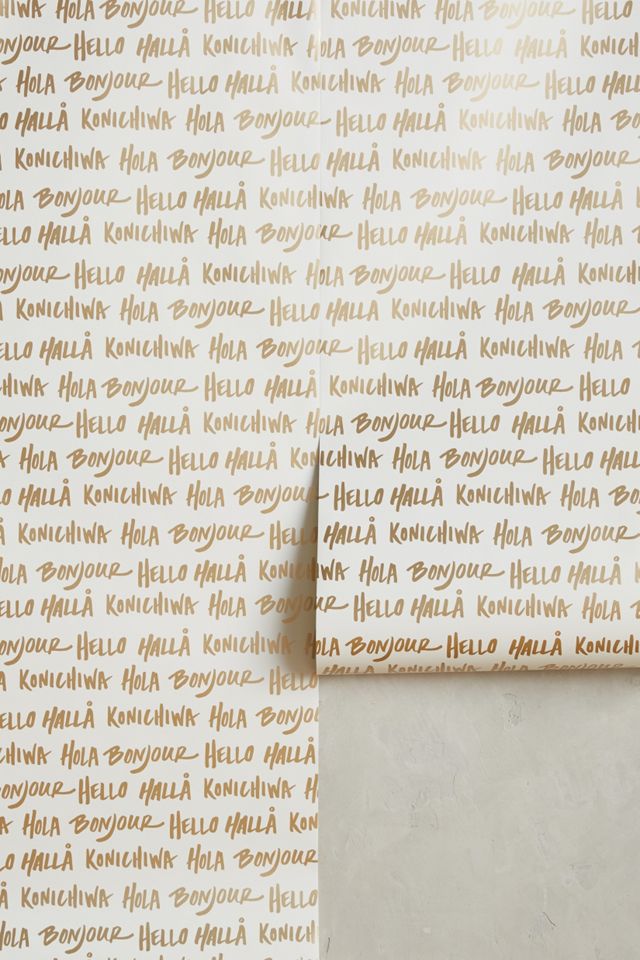 HIWA HOLA BONJOUR HELLO HALLÅ KONICHIWA HOLA BONJOUR HELLO
ONJOUR HELLO HALLÅ KONICHIWA HOLA BONJOUR HELLO HALLÅ KONICH
HOLA BONJOUR HELLO HALLÅ KONICHIWA HOLA BONJOUR HELLO HALL
O HALLÅ KONICHIWA HOLA BONJOUR HELLO HALLÅ KONICHIWA HOLA BO
KONICHIWA HOLA BONJOUR HELLO HALLÅ KONICHIWA HOLA BONJOUR
OLA BONJOUR HELLO HALLÅ KONICHIWA HOLA BONJOUR HELLO HALLÅ
ELLO HALLÅ KONICHIWA HOLA BONJOUR HELLO HALLÅ KONICHIWA HOLA
ONJOUR HELLO HALLÅ KONICHIWA HOLA BONJOUR HELLO HALLÅ KONICH
KONICHIWA HOLA BONJOUR HELLO HALLÅ KONICHIWA HOLA BONJOUR
ELLO HALLÅ KONICHIWA HOLA BONJOUR HELLO HALLÅ KONICHIWA HOLA
CHIWA HOLA BONJOUR HELLO HALLÅ KONICHIWA HOLA BONJOUR HELLO
ONJOUR HELLO HALLÅ KONICHIWA HOLA BONJOUR HELLO HALLÅ KONICH
HOLA BONJOUR HELLO HALLÅ KONICHIWA HOLA BONJOUR HELLO HALL
O HALLÅ KONICHIWA HOLA BONJOUR HELLO HALLÅ KONICHIWA HOLA BO
KONICHIWA HOLA BONJOUR HALLÅ KONICHIWA HOLA BONJOUR
OLA BONJOUR HELLO HALLÅ KONICHIWA HOLA BONJOUR HELLO HALLÅ
ELLO HALLÅ KONICHIWA HOLA BONJOUR HELLO HALLÅ KONICHIWA HOLA
ONJOUR HELLO HALLÅ KONICHIWA HOLA BONJOUR HELLO HALLÅ KONICHI
KONICHIWA HOLA BONJOUR HELLO HALLÅ KONICHIWA HOLA BONJOUR
ELLO HALLÅ KONICHIWA HOLA BONJO
CHIWA HOLA BONJOUR HELLO HALLÅ
ONJOUR HELLO HALLÅ KONICHIWA
HOLA BONJOUR HELLO HALLÅ KON
LO HALLÅ KONICHIWA HOLA BONJOUR
KONICHIWA HOLA BONJOUR HELLO
HOLA BONJOUR HELLO HALLÅ KONICH